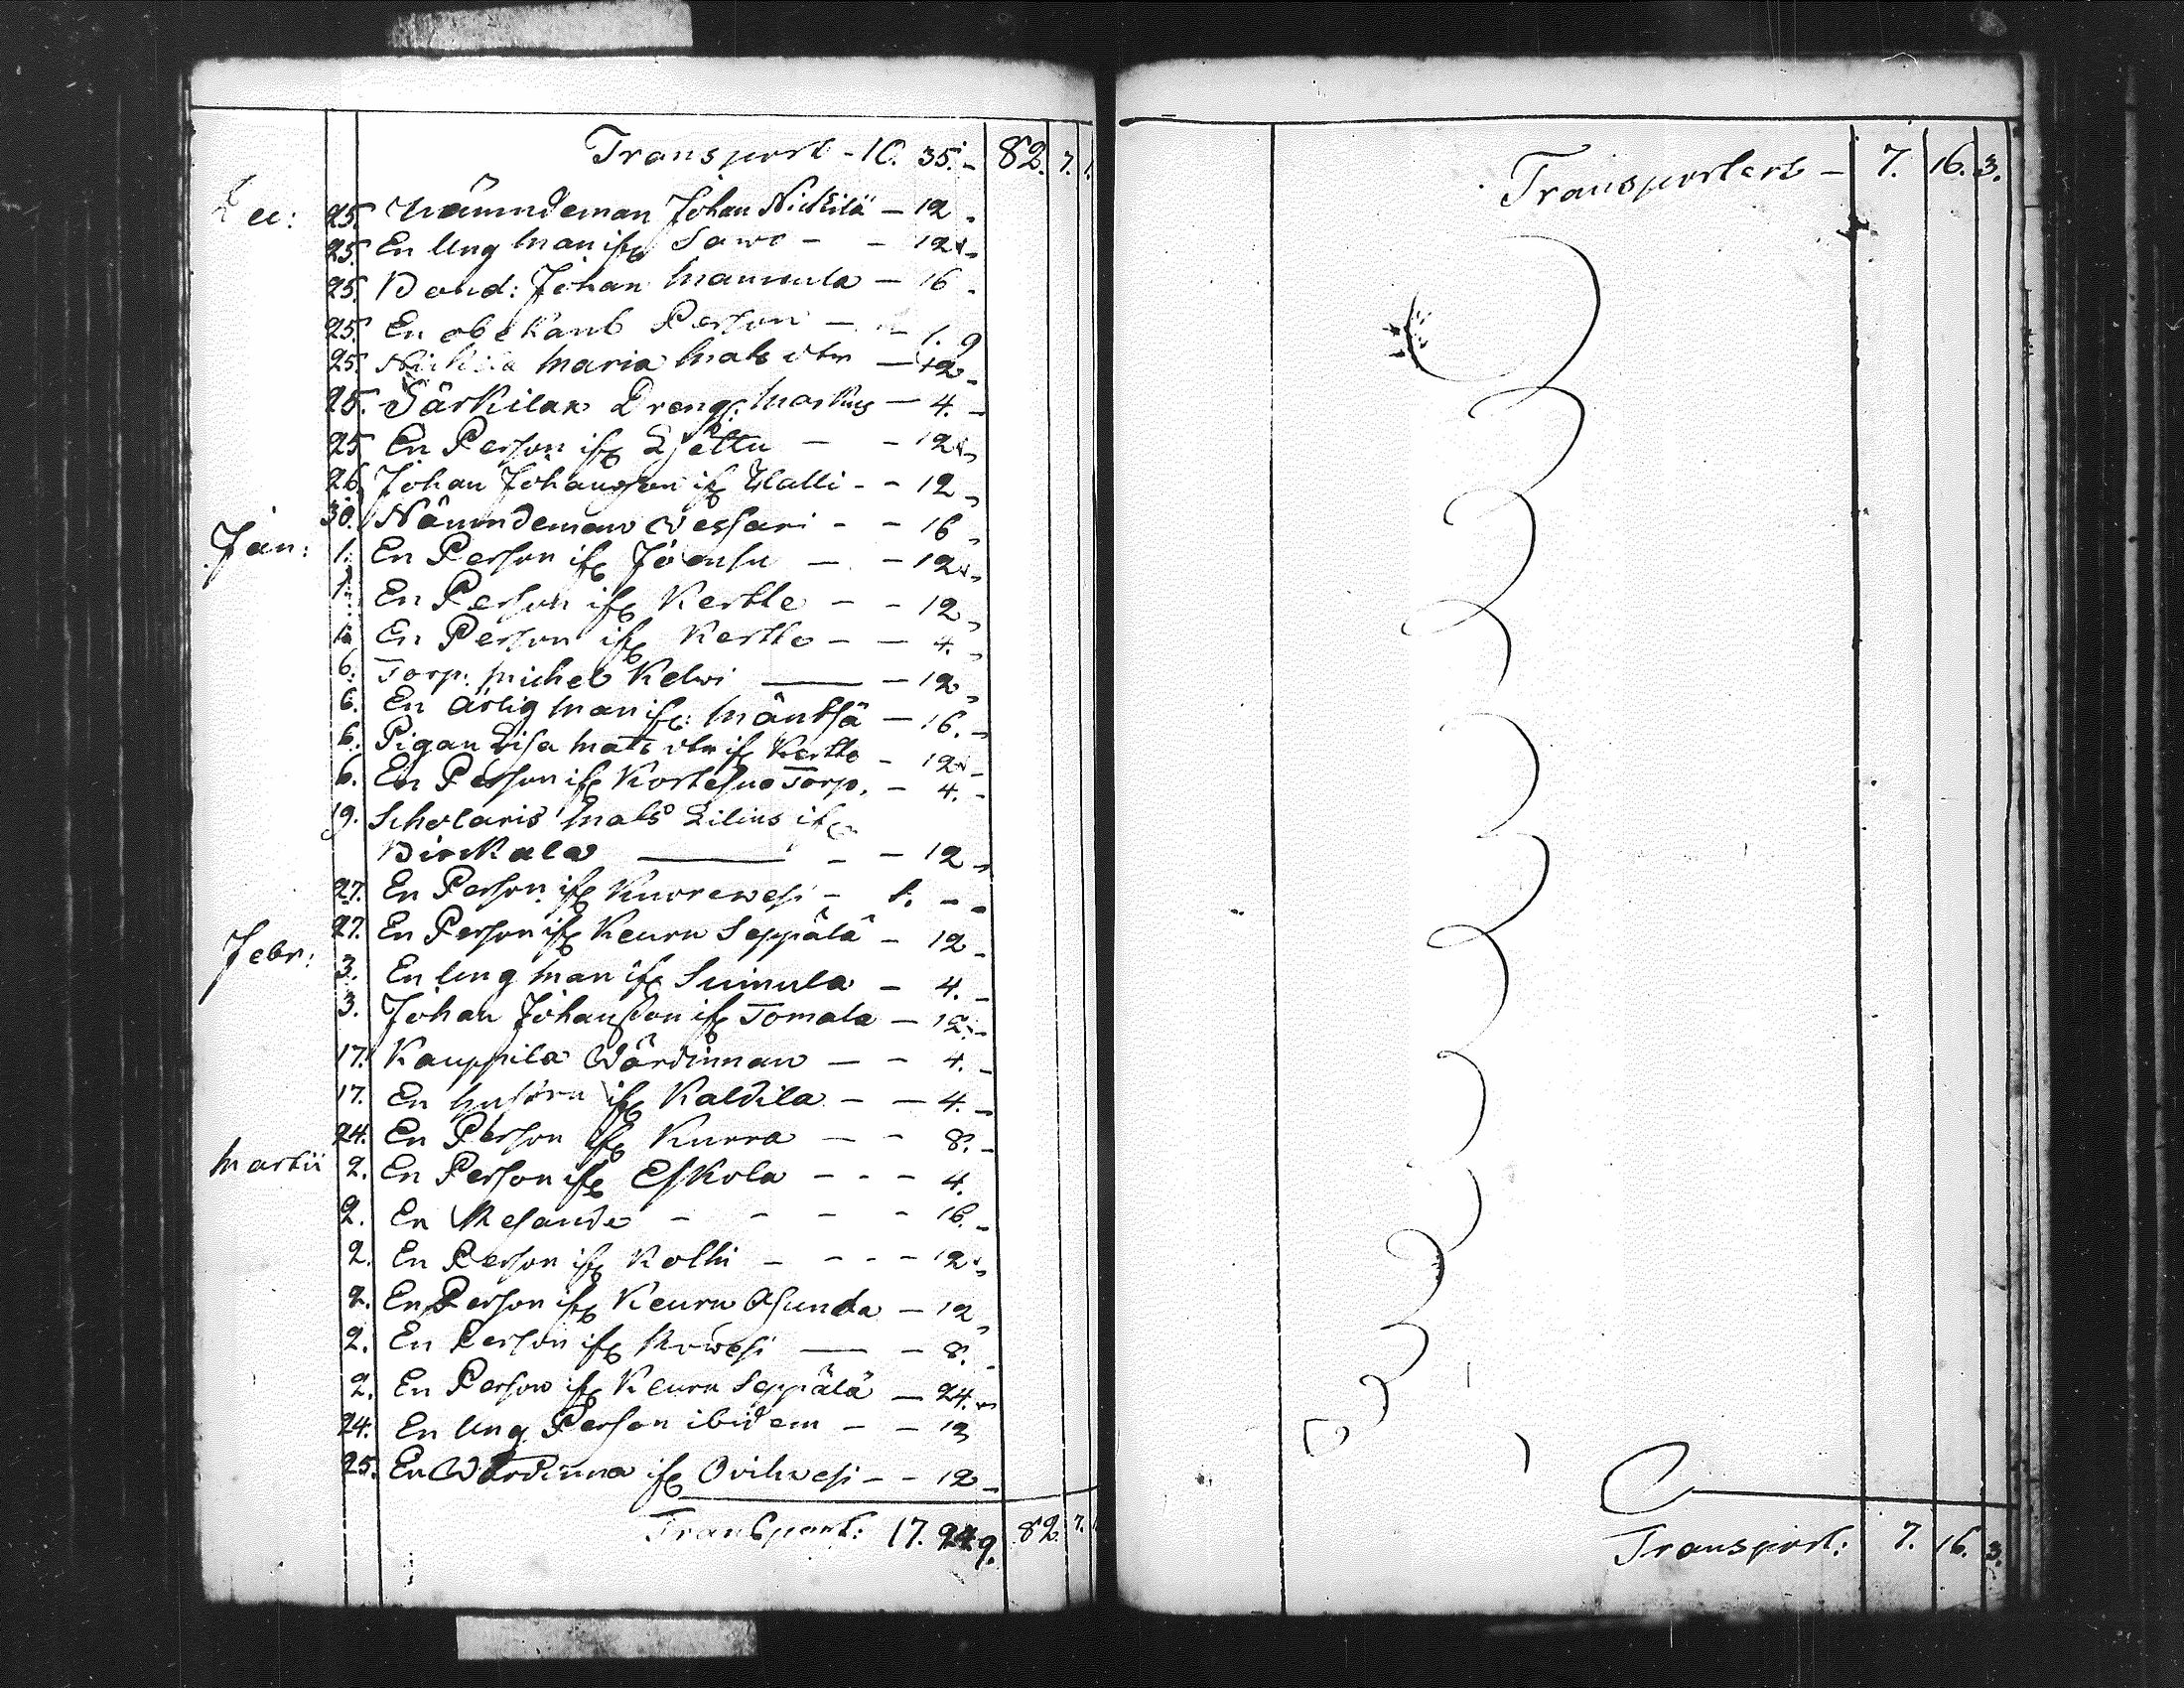 Transport - 10. 35. - 82. 7.
Dec: 25. Nämndeman Johan Nickilä - 12 -
25. En Ung Man ifr Sawo - - 12 -
25. Bond: Johan Mannula - 16 -
25. En obekant Person - - 1. 9
25. Nickila Maria Mats dtr - 12 -
25. Särkilax Dreng: Markus - 4. -
25 En Person ifr - - 12 -
26 Johan Johansson ifr Ylalli - - 12 -
30. Nämndeman Wessari - - 16 -
Jan: 1. En Person ifr Jöensu - - 12 -
1. En Person ifr Kertte - - 12 -
1. En Person ifr Kertte - - 4. -
6. Torp. Michel Kelwi - 12 -
6. En ärlig Man ifr: Mäntsä - 16. -
6. Pigan Lisa Mats dtr ifr Kertte - 12 -
6. En Person ifr Kortesuo Torp. - 4. -
19. Scholaris Mats Lilius ifr
Birkala - - 12 -
27. En Person ifr Kuorewesi - 1. - -
27. En Person ifr Keuru Seppälä - 12 -
Febr: 3. En Ung Man ifr Suinula - 4. -
3. Johan Johansson ifr Tomala - 12 -
17. Kauppila Wärdinnan - - 4. -
17. En ifr Kaldila - - 4. -
24. En Person ifr Kurra - - 8. -
Martii 2. En Person ifr Eskola - - - 4.
2. En Resande - - - - 16. -
2. En Person ifr Kolhi - - - - 12 -
2. En Person ifr Keuru Asunda - 12 -
2. En Person ifr Rowesi - - 8. -
2. En Person ifr Keuru Seppälä - 24. -
24. En Ung Person ibidem - - 12
25. En Wärdinna ifr Orihwesi - - 12 -
Transport: 17. 24 9. 82. 7.
Transportert - 7. 16. 3.
Transport: 7. 16. 3.